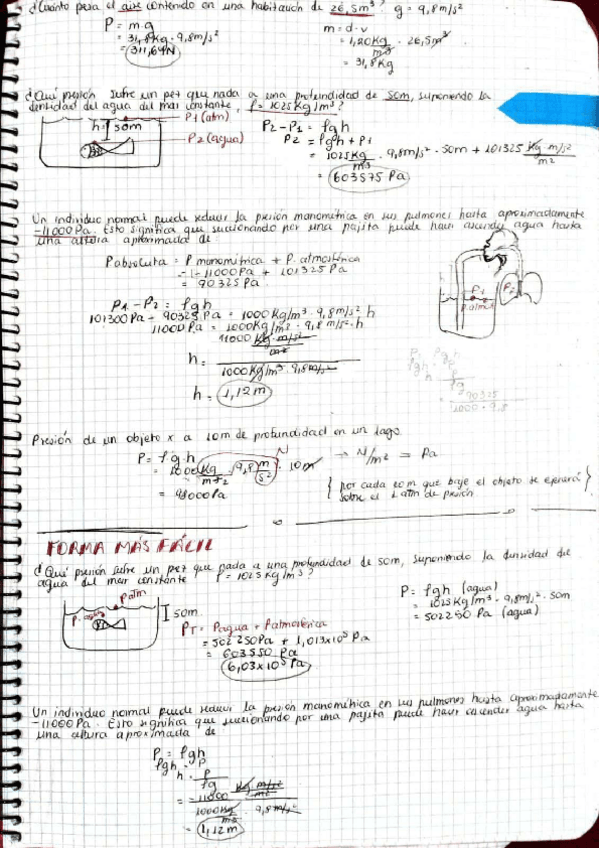 ¿Cuánto pesa el aire contenido en una habitación de 26,5m³? g = 9,8m/s²
P = m·g
= 31,8kg · 9,8m/s²
= 311,64N
m = d·v
= 1,20Kg/m³ · 26,5m³
= 31,8Kg
¿Qué presión sufre un pez que nada a una profundidad de 50m, suponiendo la
densidad del agua del mar constante, ρ=1025Kg/m³?
P1 (atm)
h= 50m
P2 (agua)
P2-P1 = ρgh
P2 = ρgh + P1
= 1025Kg/m³ · 9,8m/s² · 50m + 101325 Kg·m/s²/m²
= 603575 Pa
Un individuo normal puede reducir la presión manométrica en sus pulmones hasta aproximadamente
-11000Pa. Esto significa que succionando por una pajita puede hacer ascender agua hasta
una altura aproximada de:
Pabsoluta = P manométrica + P. atmosférica
= -11000Pa + 101325Pa
= 90325Pa
P1 - P2 = ρgh
101300Pa - 90325Pa = 1000Kg/m³ · 9,8m/s² · h
11000Pa = 1000Kg/m³ · 9,8m/s² · h
h = 11000 Kg·m/s²/m² / 1000Kg/m³ · 9,8m/s²
h = 1,12m
P1
P2
Presión de un objeto x a 10m de profundidad en un lago
P = ρg·h
= 1000Kg/m³ · 9,8 m/s² · 10m → N/m² = Pa
= 98000Pa
N
{por cada 10m que baje el objeto se ejercerá
sobre él 1 atm de presión}
FORMA MÁS FÁCIL
¿Qué presión sufre un pez que nada a una profundidad de 50m, suponiendo la densidad de
agua del mar constante ρ = 1025Kg/m³?
Patm
P. agua
50m
PT = Pagua + Patmosférica
= 502250Pa + 1,013x10⁵Pa
= 603550Pa
= 6,03x10⁵Pa
P = ρgh (agua)
= 1025Kg/m³ · 9,8m/s² · 50m
= 502250Pa (agua)
Un individuo normal puede reducir la presión manométrica en sus pulmones hasta aproximadamente
-11000Pa. Esto significa que succionando por una pajita puede hacer ascender agua hasta
una altura aproximada de
P = ρgh
ρgh = P
h = P/ρg
= -11000 Kg·m/s²/m² / 1000Kg/m³ · 9,8m/s²
= 1,12m